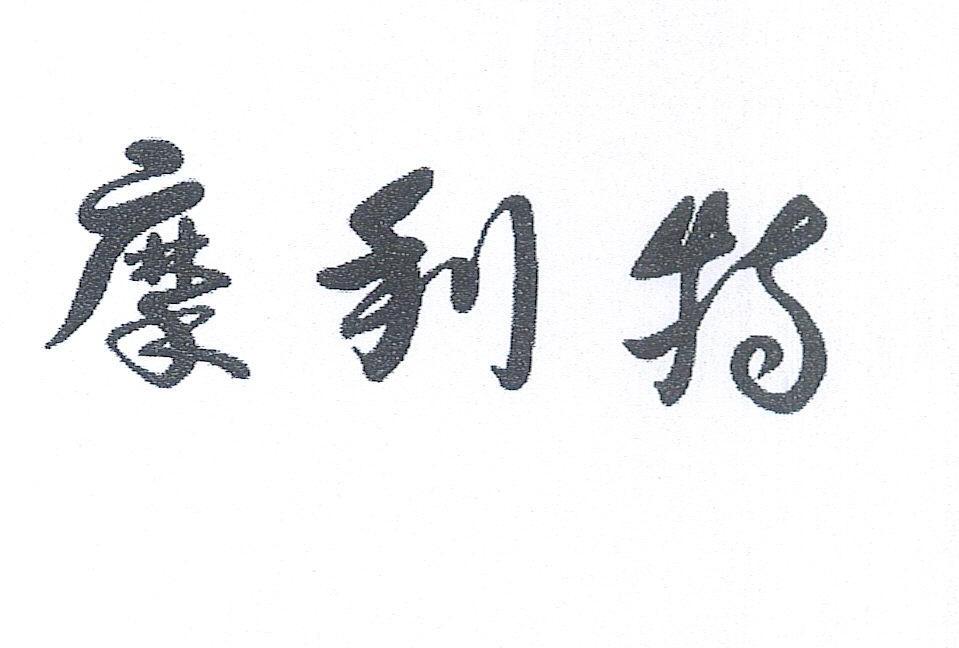 摩利特